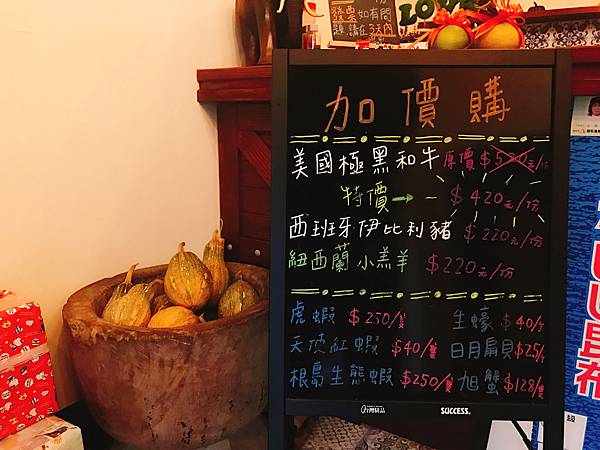 發票如有問
題,請在3天內
加價購
美國極黑和牛 原價$520元/份
特價→ $420元/份
西班牙伊比利豬 $220元/份
紐西蘭小羔羊 $220元/份
虎蝦 $250/隻 生蠔 $40/
天使紅蝦 $40/隻 日月扇貝 $25/
根島生態蝦 $250/隻 旭蟹 $128/隻
SUCCESS
昆布